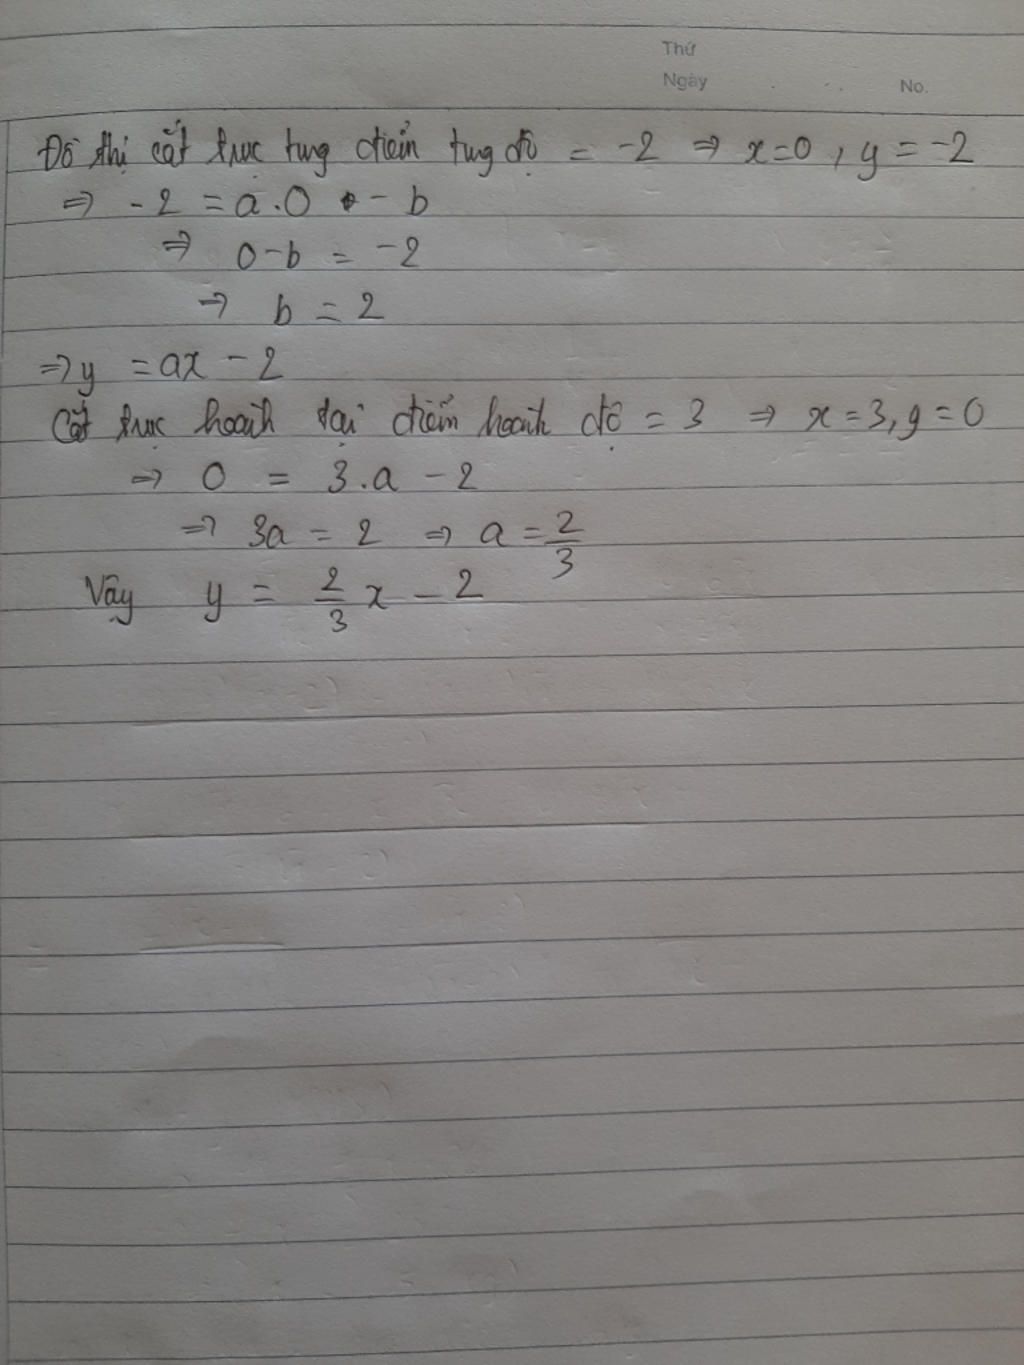 Thứ
Ngày No.
Đồ thị cắt trục tung điểm tung độ = -2 => x=0, y = -2
=> -2 = a.0 - b
=> 0-b = -2
=> b = 2
=> y = ax - 2
Cắt trục hoành tại điểm hoành độ = 3 => x=3, y=0
=> 0 = 3.a - 2
=> 3a = 2 => a = 2/3
Vậy y = 2/3 x - 2